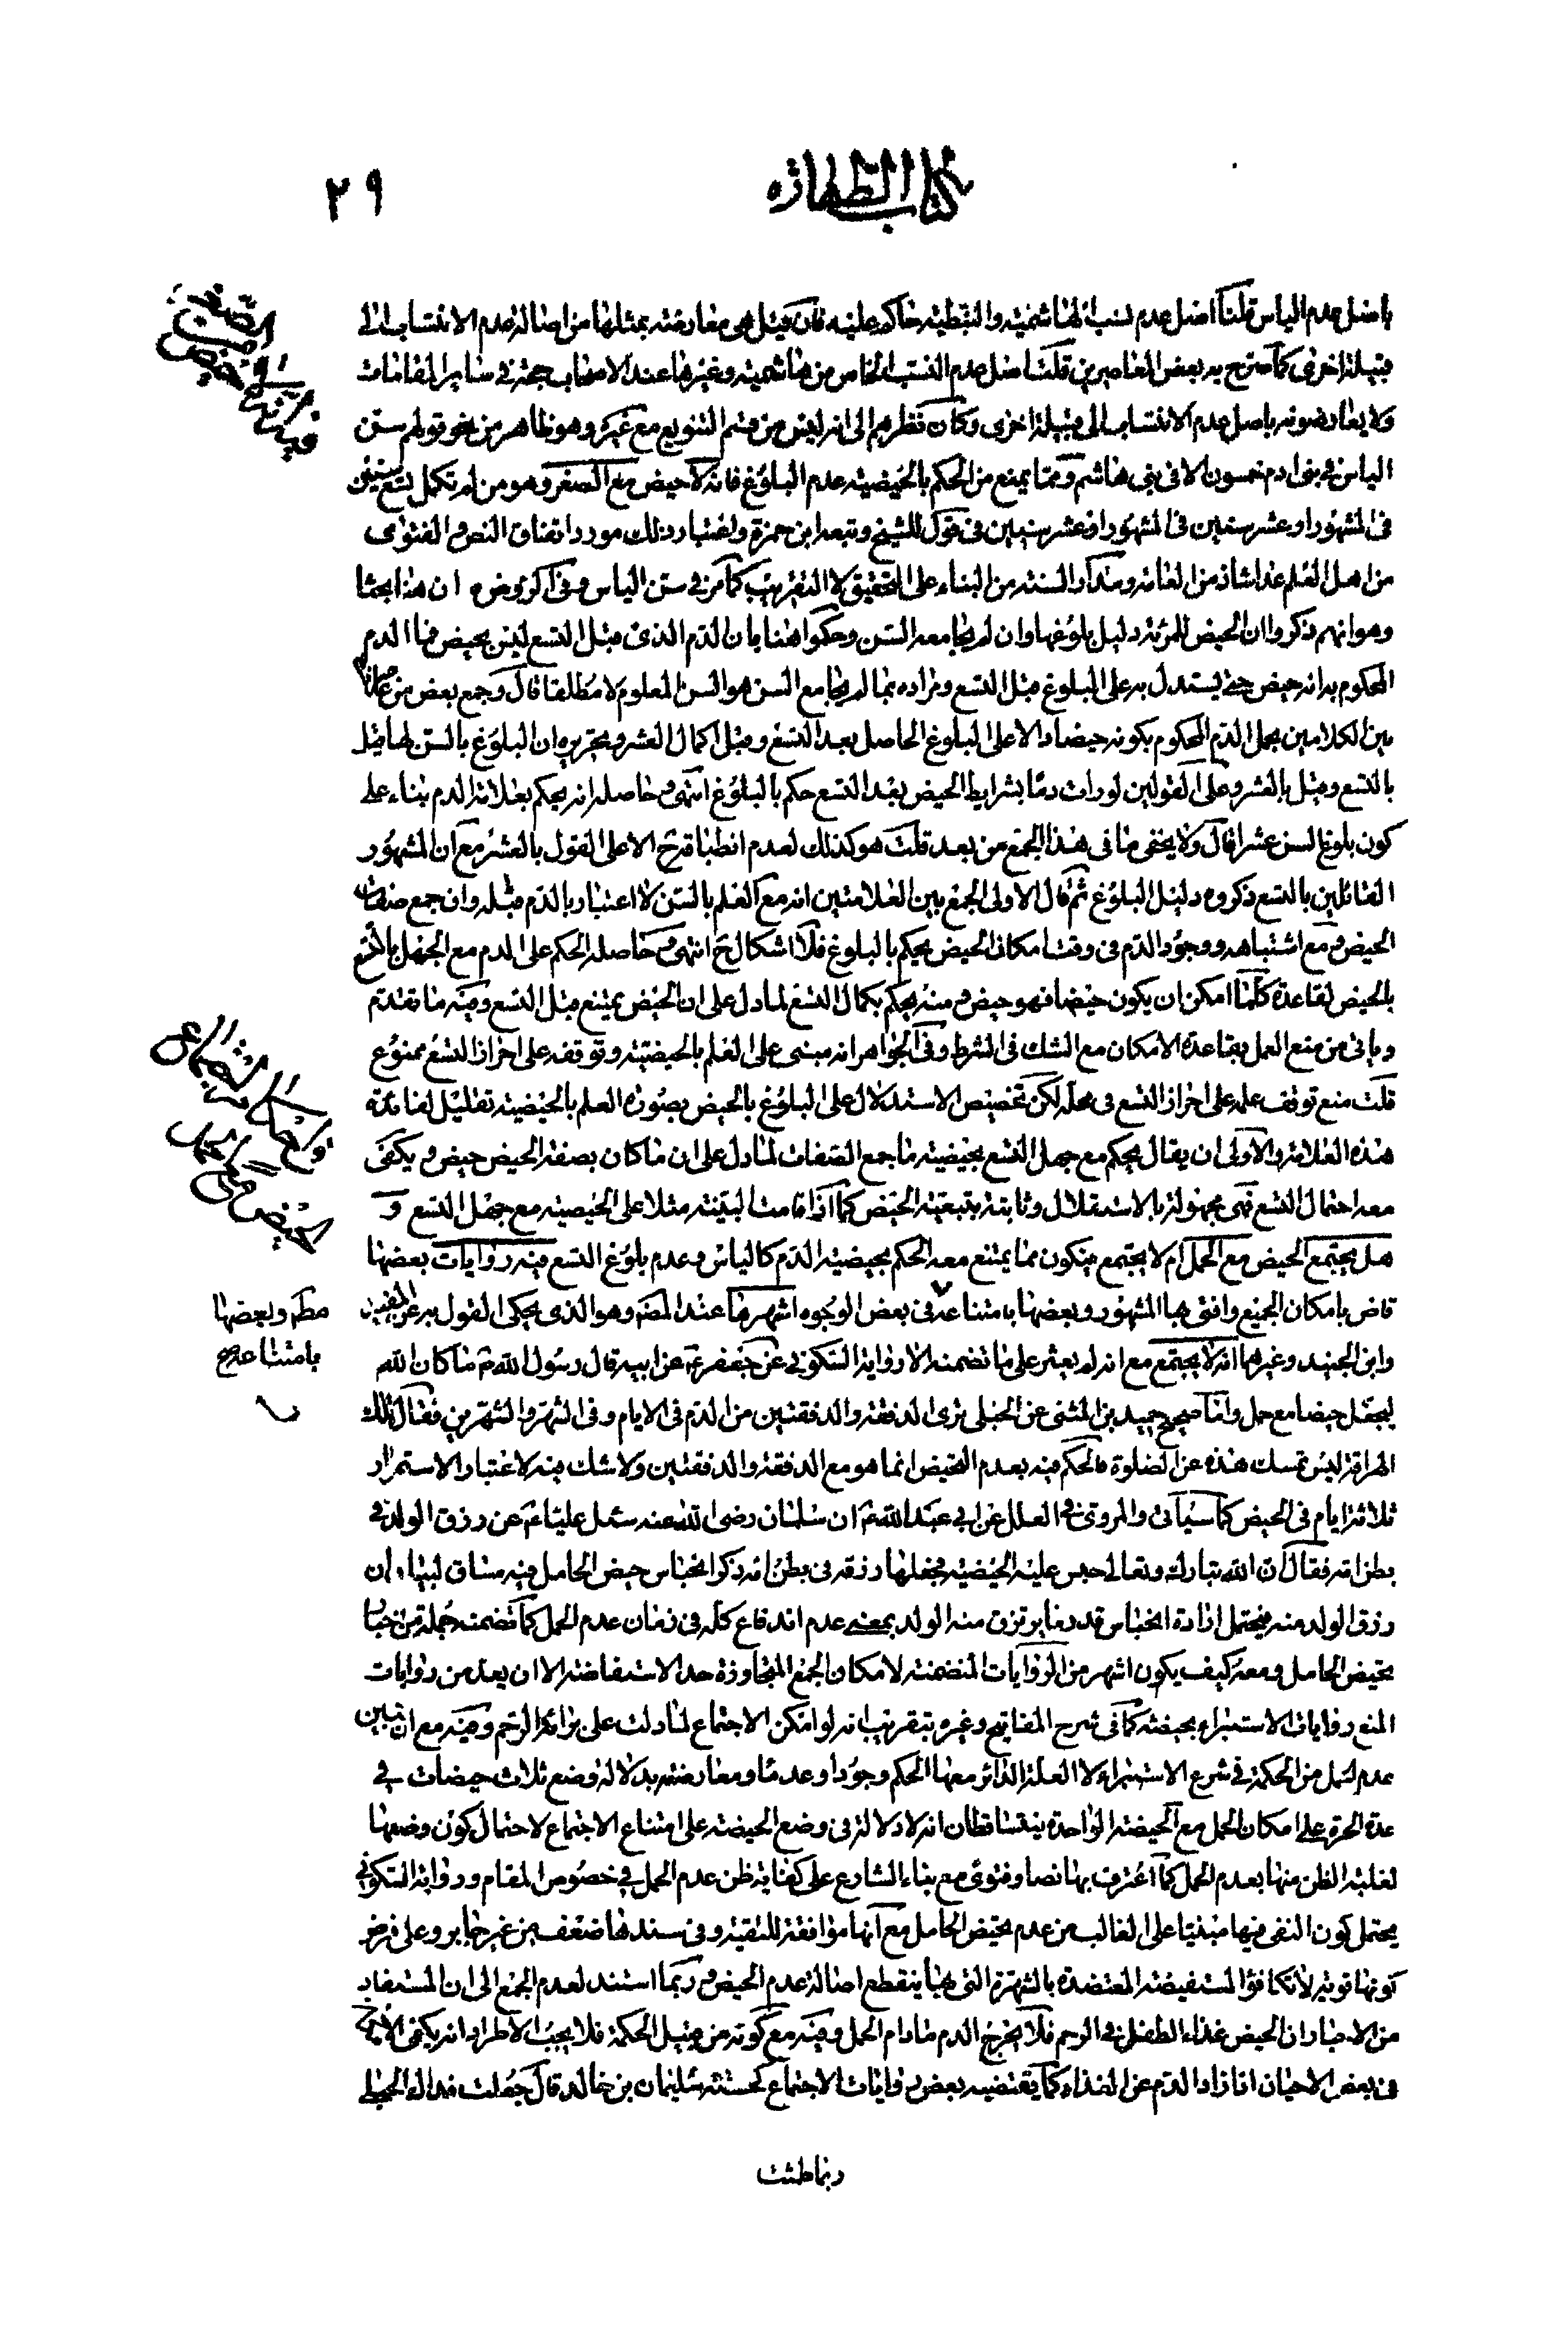 كتاب الطهارة
٢٩
باصل عدم الياس قلنا اصل عدم نسب الهاشمية والنبطية حاكم عليه فان قيل هي معارضة بمثلها من اصالة عدم الانتساب الى
قبيلة اخرى كما صرح به بعض المعاصرين قلت اصل عدم النسب الخاص من هاشمية وغيرها عند الاصحاب حجة في ساير المقامات
ولا يعارضونه باصل عدم الانتساب الى قبيلة اخرى وكان نظرهم الى انه ليس من قسم التنويع مع غيره وهو ظاهر من نحو قولهم سن
الياس في بنى ادم خمسون الا في بنى هاشم ومما يمنع من الحكم بالحيضية عدم البلوغ فانه لا حيض مع الصغر وهو من لم تكمل تسع سنين
في المشهور او عشر سنين في قول للشيخ وتبعه ابن حمزة واعتبار ذلك مورد اتفاق النص والفتوى
من اهل العلم عدا شاذ من العامة ومدار السنة من البناء على التحقيق لا التقريب كما مر في سن الياس وفى الروض ان هنا بحثا
وهو انهم ذكروا ان الحيض للمرئة دليل بلوغها وان لم يجامعه السن وحكموا هنا بان الدم الذى قبل التسع ليس بحيض فما الدم
المحكوم به انه حيض حتى يستدل به على البلوغ قبل التسع ومراده بما لم يجامع السن هو السن المعلوم لا مطلقا قال وجمع بعض من عاصرناه
بين الكلامين بحمل الدم المحكوم بكونه حيضا دالا على البلوغ الحاصل بعد التسع وقبل اكمال العشر وتحريره ان البلوغ بالسن لها قيل
بالتسع وقيل بالعشر وعلى القولين لو رات دما بشرايط الحيض بعد التسع حكم بالبلوغ انتهى وحاصله انه يحكم بعلامة الدم بناء على
كون بلوغ السن عشرا قال ولا يخفى ما في هذا الجمع من بعد قلت هو كذلك لعدم انطباقه ح الا على القول بالعشر مع ان المشهور
القائلين بالتسع ذكروه دليل البلوغ ثم قال الاولى الجمع بين العلامتين انه مع العلم بالسن لا اعتبار بالدم قبله وان جمع صفات
الحيض ومع اشتباهه ووجود الدم في وقت امكان الحيض يحكم بالبلوغ فلا اشكال ح انتهى وحاصله الحكم على الدم مع الجهل بالتسع
بالحيض لقاعدة كلما امكن ان يكون حيضا فهو حيض ومنه يحكم بكمال التسع لما دل على ان الحيض يمتنع قبل التسع وفيه ما تقدم
وياتى من منع العمل بقاعدة الامكان مع الشك في الشرط وفى الجواهر انه مبنى على العلم بالحيضية وتوقفه على احراز التسع ممنوع
قلت منع توقف علمه على احراز التسع في محله لكن تخصيص الاستدلال على البلوغ بالحيض بصورة العلم بالحيضية تقليل لفائدة
هذه العلامة والاولى ان يقال يحكم مع جهل التسع بحيضية ما جمع الصفات لما دل على ان ما كان بصفة الحيض حيض ويكفى
معه احتمال التسع فهى مجهولة بالاستقلال وثابتة بتبعية الحيض كما اذا قامت البينة مثلا على الحيضية مع جهل التسع و
هل يجتمع الحيض مع الحمل ام لا يجتمع فيكون مما يمتنع معه الحكم بحيضية الدم كالياس وعدم بلوغ التسع فيه روايات بعضها
قاض بامكان الجميع وافتى بها المشهور وبعضها بامتناعه في بعض الوجوه اشهرها عند المصنف وهو الذى يحكى القول به عن المفيد
وابن الجنيد وغيرهما انه لا يجتمع مع انه لم يعثر على ما تضمنه الا رواية السكونى عن جعفر ع عن ابيه قال رسول الله ص ما كان الله
ليجعل حيضا مع حمل واما صحيح حميد بن المثنى عن الحبلى ترى الدفقة والدفقتين من الدم في الايام وفى الشهر والشهرين فقال تلك
الهراقة ليس تمسك هذه عن الصلوة فالحكم فيه بعدم التحيض انما هو مع الدفقة والدفقتين ولا شك فيه لاعتبار الاستمرار
ثلاثة ايام في الحيض كما سياتى والمروى في العلل عن ابى عبد الله ع ان سلمان رضى الله عنه سئل عليا ع عن رزق الولد في
بطن امه فقال ان الله تبارك وتعالى حبس عليه الحيضية فجعلها رزقه في بطن امه ذكر انحباس حيض الحامل فيه مساق لبيان ان
رزق الولد منه فيحتمل ارادة انحباس قدر ما يرتزق منه الولد بمعنى عدم اندفاع كله في زمان عدم الحمل كما تضمنه جملة من اخبار
تحيض الحامل ومعه كيف يكون اشهر من الروايات المتضمنة لامكان الجمع المتجاوزة حد الاستفاضة الا ان يعد من روايات
المنع روايات الاستبراء بحيضة كما في شرح المفاتيح وغيره بتقريب انه لو امكن الاجتماع لما دلت على برائة الرحم وفيه مع ان تبين
عدم الحمل من الحكمة في شرع الاستبراء لا العلة الدائر معها الحكم وجودا وعدما ومعارضته بدلالة وضع ثلاث حيضات في
عدة الحرة على امكان الحمل مع الحيضة الواحدة يتساقطان انه لا دلالة في وضع الحيضة على امتناع الاجتماع لاحتمال كون وضعها
لغلبة الظن منها بعدم الحمل كما اعترف بها نصا وفتوى مع بناء الشارع على كفاية ظن عدم الحمل في خصوص المقام ورواية السكونى
يحتمل كون النفى فيها مبنيا على الغالب من عدم تحيض الحامل مع انها موافقة للتقية وفى سندها ضعف من غير جابر وعلى فرض
كونها قوية لا تكافؤ المستفيضة المعتضدة بالشهرة التى بها ينقطع اصالة عدم الحيض وربما استند لعدم الجمع الى ان المستفاد
من الاخبار ان الحيض غذاء الطفل في الرحم فلا يخرج الدم مادام الحمل وفيه مع كونه من قبيل الحكمة فلا يجب الاطراد انه يكفى
في بعض الاحيان اذا زاد الدم عن الغذاء كما يقتضيه بعض روايات الاجتماع كحسنة سليمان بن خالد قال جعلت فداك الحبلى
ربما طمثت
مطم وبعضها
بامتناعه